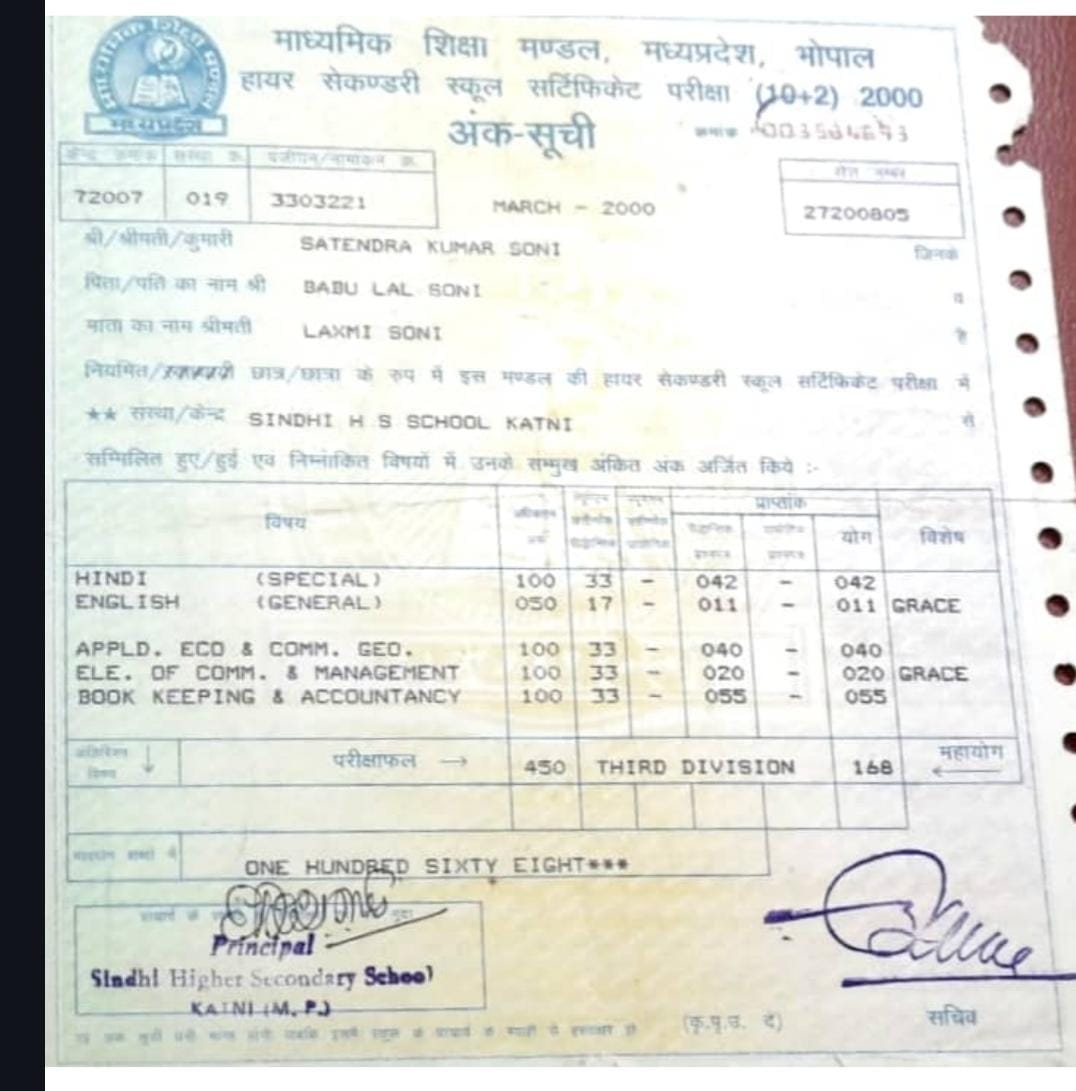 माध्यमिक शिक्षा मण्डल, मध्यप्रदेश, भोपाल
हायर सेकण्डरी स्कूल सर्टिफिकेट परीक्षा (10+2) 2000
अंक-सूची
क्रमांक
रोल नम्बर
72007 019 3303221 MARCH - 2000 27200805
श्री/श्रीमती/कुमारी SATENDRA KUMAR SONI जिनके
पिता/पति का नाम श्री BABU LAL SONI व
माता का नाम श्रीमती LAXMI SONI है
नियमित/ छात्र/छात्रा के रुप में इस मण्डल की हायर सेकण्डरी स्कूल सर्टिफिकेट परीक्षा में
★★ संस्था/केन्द्र SINDHI H S SCHOOL KATNI से
सम्मिलित हुए/हुई एवं निम्नांकित विषयों में उनके सम्मुख अंकित अंक अर्जित किये :-
प्राप्तांक
विषय योग विशेष
HINDI (SPECIAL) 100 33 - 042 - 042
ENGLISH (GENERAL) 050 17 - 011 - 011 GRACE
APPLD. ECO & COMM. GEO. 100 33 - 040 - 040
ELE. OF COMM. & MANAGEMENT 100 33 - 020 - 020 GRACE
BOOK KEEPING & ACCOUNTANCY 100 33 - 055 - 055
परीक्षाफल → 450 THIRD DIVISION 168 महायोग ←
ONE HUNDRED SIXTY EIGHT***
Principal
Sindhi Higher Secondary School
KATNI (M. P.)
(कृ.पृ.उ. दे)
सचिव